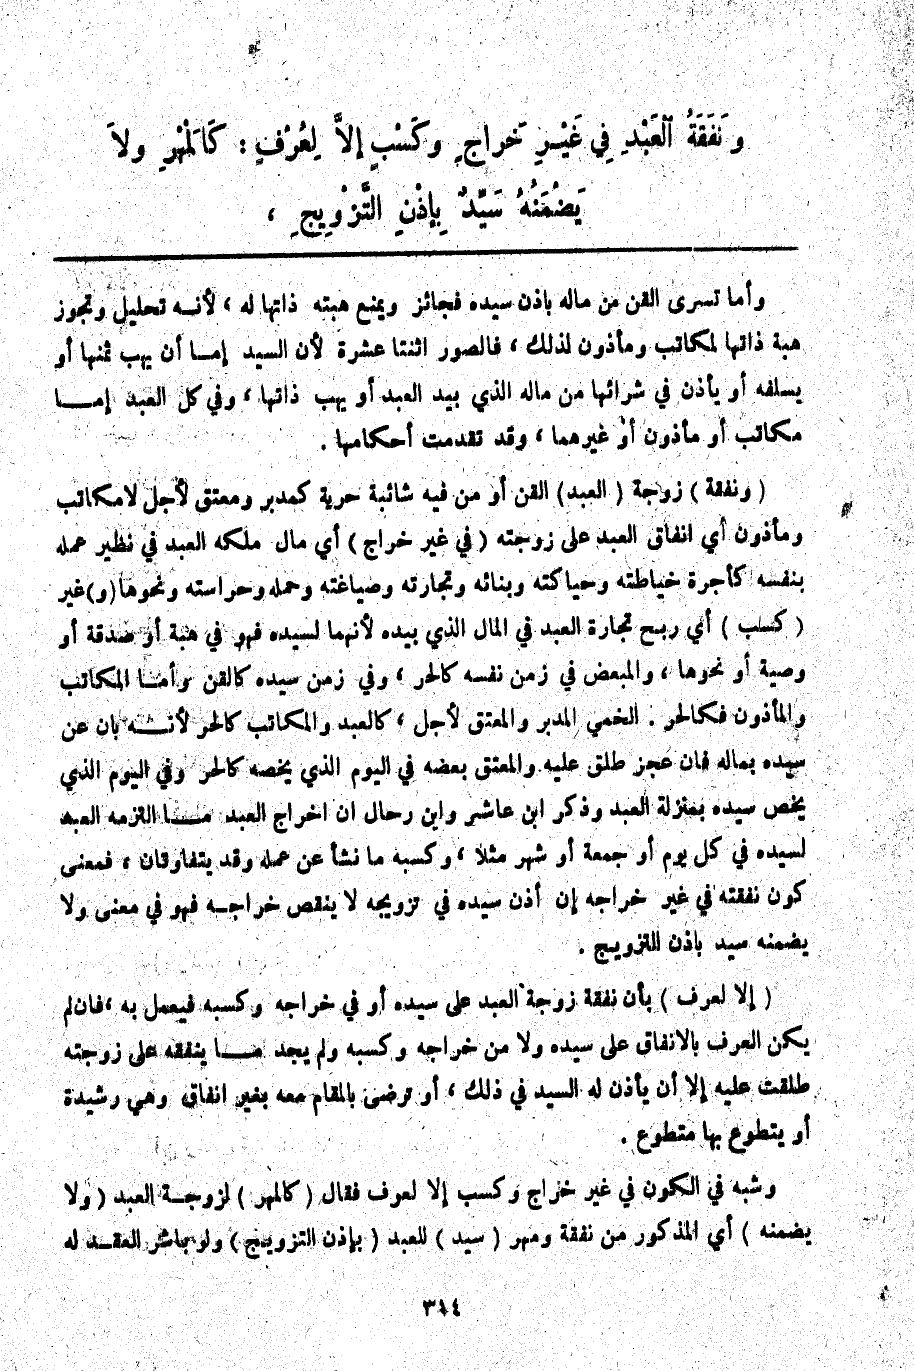 وَنَفَقَةُ ٱلْعَبْدِ فِي غَيْـرِ خَراجٍ وكَسْبٍ إلاَّ لِعُرْفٍ : كَالْمَهْرِ ولاَ
يَضْمَنُهُ سَيِّدٌ بِإذْنِ التَّزْوِيجِ ،
وأما تسرى القن من ماله باذن سيده فجائز ويمنع هبته ذاتها له ، لأنـه تحليل وتجوز
هبة ذاتها لمكاتب ومأذون لذلك ، فالصور اثنتا عشرة لأن السيد إمـا أن يهب ثمنها أو
يسلفه أو يأذن في شرائها من ماله الذي بيد العبد أو يهب ذاتها ، وفي كل العبد إمـــا
مكاتب أو مأذون أو غيرهما ، وقد تقدمت أحكامها .
( ونفقة ) زوجة ( العبد ) القن أو من فيه شائبة حرية كمدبر ومعتق لأجل لامكاتب
ومأذون أي انفاق العبد على زوجته ( في غير خراج ) أي مال ملكه العبد في نظير عمله
بنفسه كأجرة خياطته وحياكته وبنائه وتجارته وصياغته وحمله وحراسته ونحوها (و)غير
( كسب ) أي ربـح تجارة العبد في المال الذي بيده لأنهما لسيده فهو في هبة أو صدقة أو
وصية أو نحوها ، والمبعض في زمن نفسه كالحر ، وفي زمن سيده كالقن وأمـا المكاتب
والمأذون فكالحر . الخمي المدبر والمعتق لأجل ، كالعبد والمكاتب كالحر لأنـــه بان عن
سيده بماله فان عجز طلق عليه والمعتق بعضه في اليوم الذي يخصه كالحر وفي اليوم الذي
يخص سيده بمنزلة العبد وذكر ابن عاشر وابن رحال ان اخراج العبد مـــا التزمه العبد
لسيده في كل يوم أو جمعة أو شهر مثلا ، وكسبه ما نشأ عن عمله وقد يتفاوتان ، فمعنى
كون نفقته في غير خراجه إن أذن سيده في تزويجه لا ينقص خراجـه فهو في معنى ولا
يضمنه سيد باذن التزويـج .
( إلا لعرف ) بأن نفقة زوجة العبد على سيده أو في خراجه وكسبه فيعمل به ،فان لم
يكن العرف بالانفاق على سيده ولا من خراجه وكسبه ولم يجد مـــا ينفقه على زوجته
طلقت عليه إلا أن يأذن له السيد في ذلك ، أو ترضى بالمقام معه بغير انفاق وهي رشيدة
أو يتطوع بها متطوع .
وشبه في الكون في غير خراج وكسب إلا لعرف فقال ( كالمهر ) لزوجـة العبد ( ولا
يضمنه ) أي المذكور من نفقة ومهر ( سيد ) للعبد ( بإذن التزويـج ) ولو باشر العقـد له
٣١٤